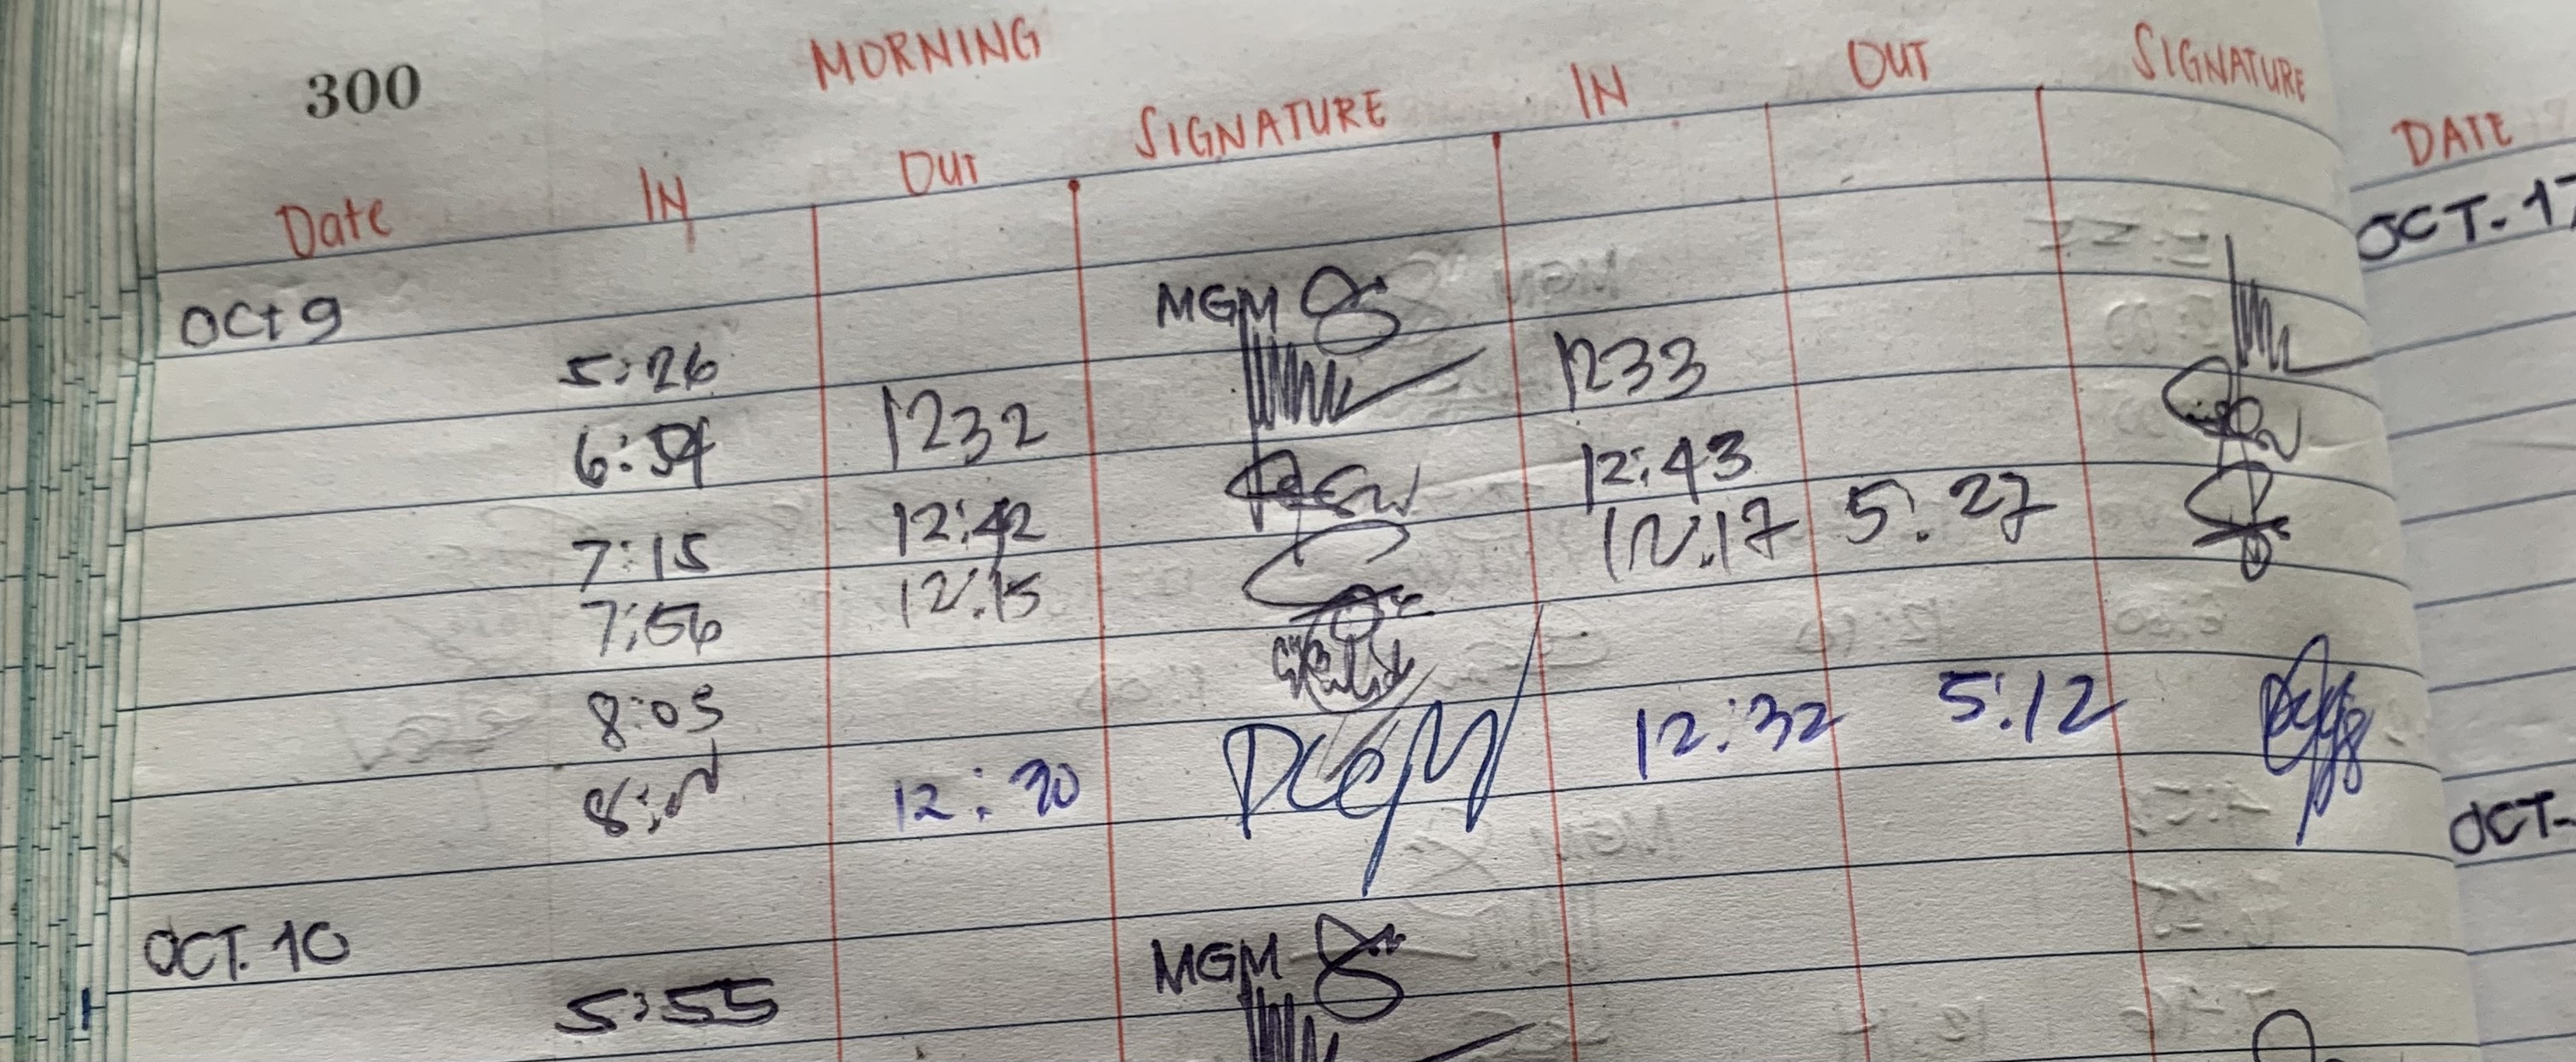 300
MORNING
Date IN OUT SIGNATURE IN OUT SIGNATURE
OCT 9 MGM
5:26
6:54 1232 1233
7:15 12:42 12:43
7:56 12:15 12:17 5:27
8:05
12:30 12:32 5:12
OCT. 10 MGM
5:55
DATE
OCT. 17
OCT.